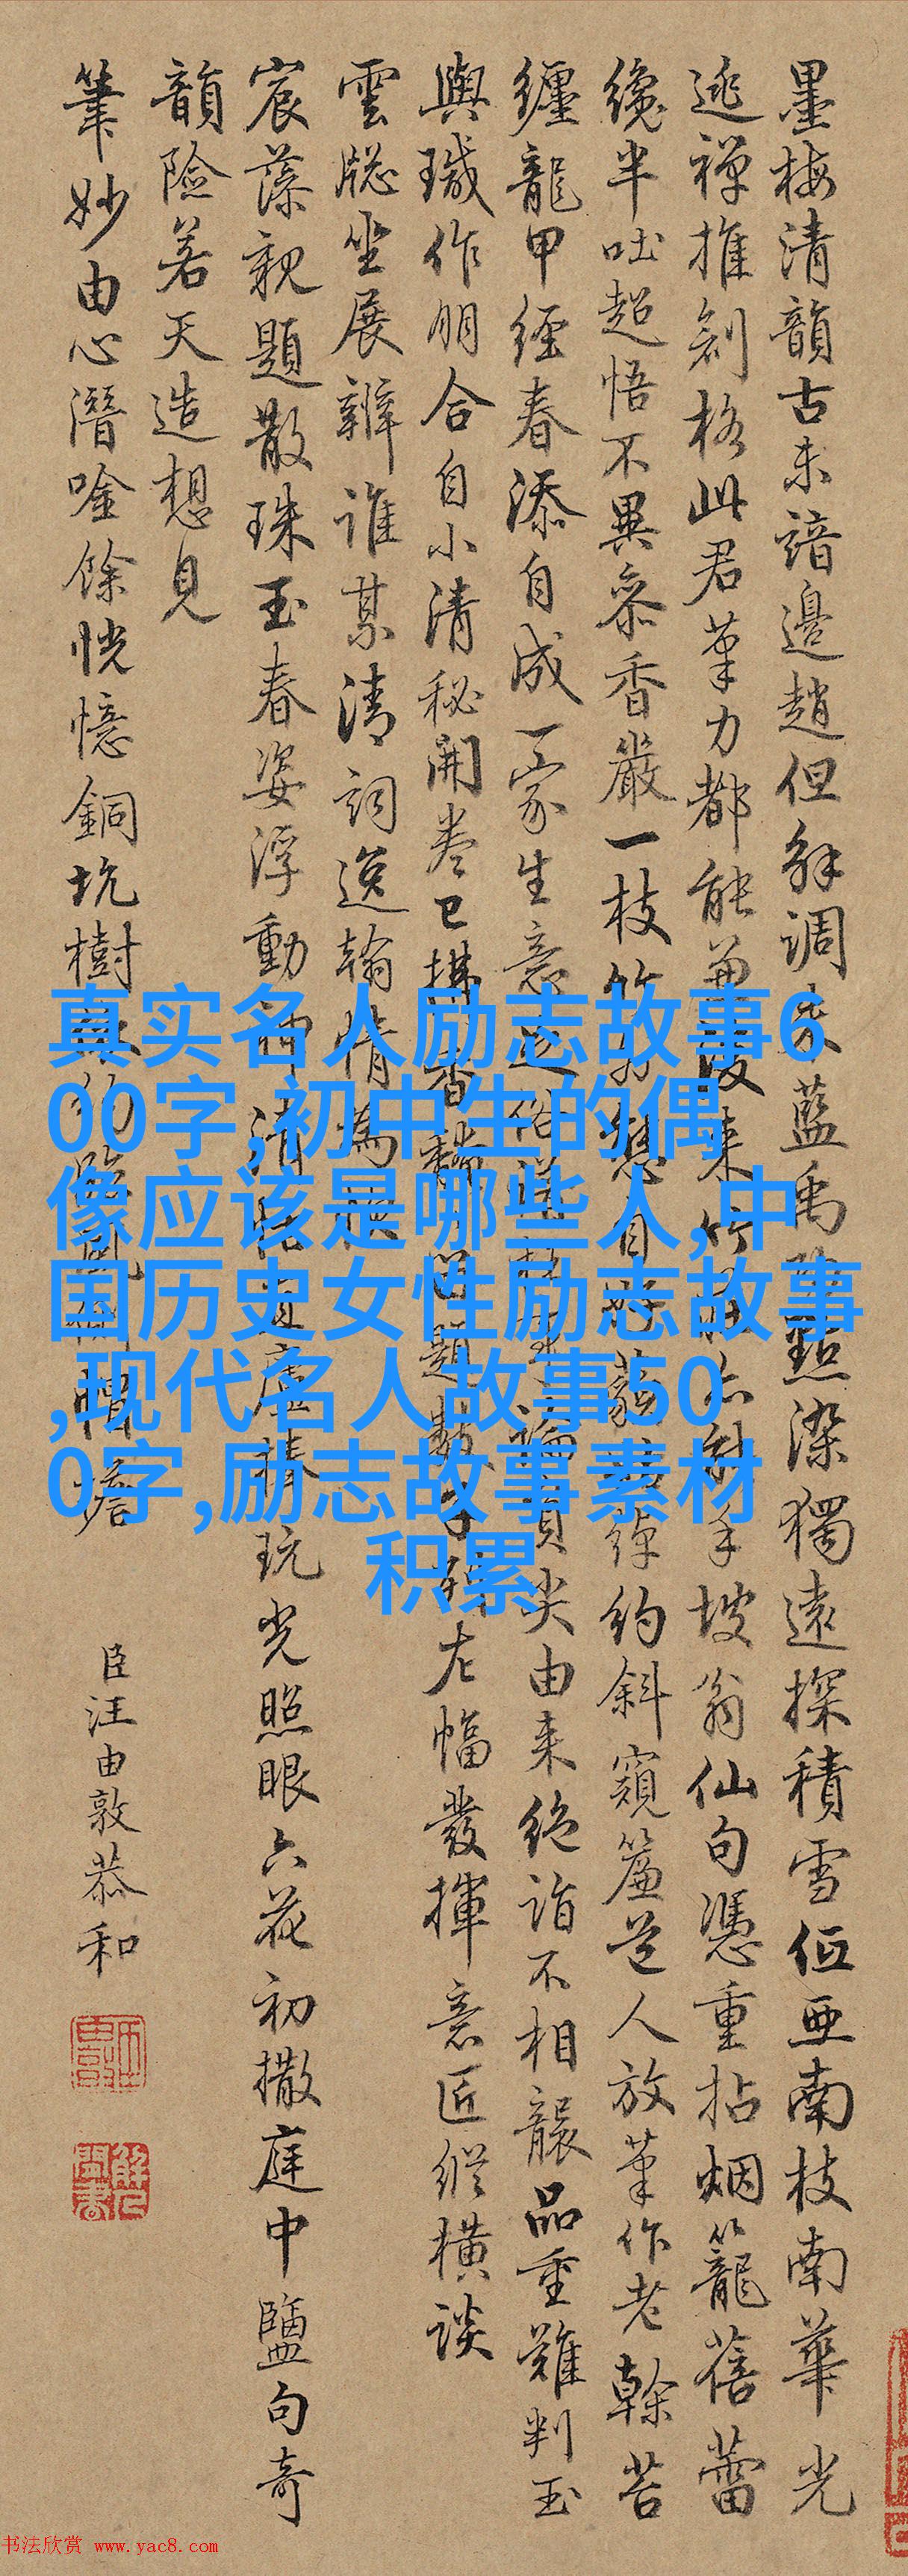 墨梅清韻古未諳邊趙但解調朱藍禹點染獨遠探積雪低亞南枝南華光
逃禪推創格此君筆力都能兼復來竹手坡翁仙句憑重拈烟籠蓓蕾
纔半吐超悟不異參香嚴一枝竹外自綽約斜窺簾道人放筆作老榦苔
纏龍甲經春添自成一家生意足俗論尖由來絕詣不相襲品重難判玉
與瑊作朋合自小清秘開卷已拂香題數左幅發揮意匠縱橫談
雲牕坐展辨誰某清詞逸翰情為
宸藻親題散珠玉春姿浮動神清虛精玩光照眼六花初撒庭中鹽句奇
韻險若天造想見
筆妙由心潛唫餘恍憶銅坑樹簷
臣汪由敦恭和
真实名人励志故事6
00字,初中生的偶
像应该是哪些人,中
国历史女性励志故事
,现代名人故事50
0字,励志故事素材
积累
书法欣赏 www.yac8.com